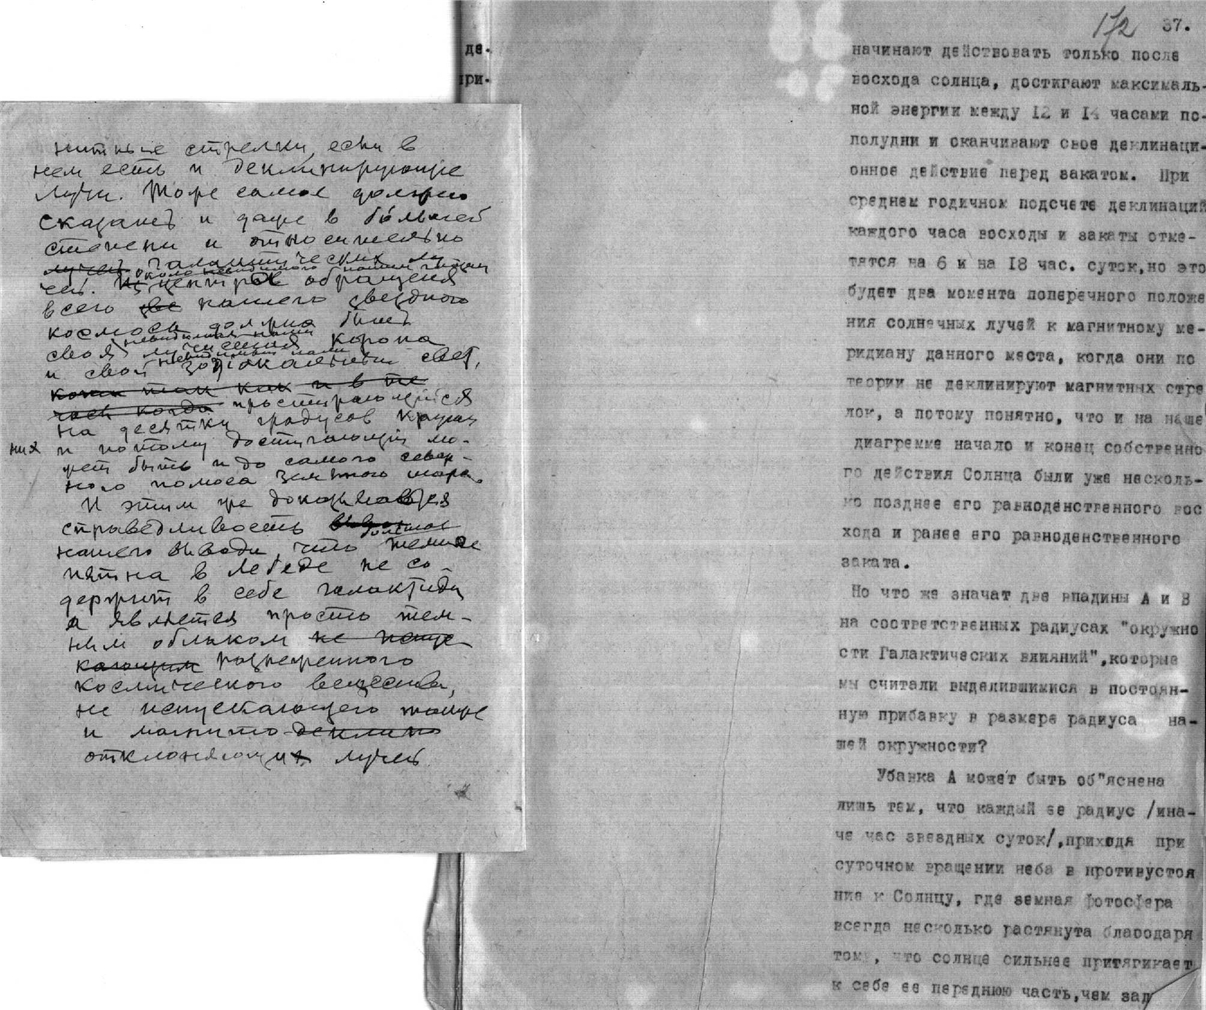 нитные стрелки, если в
нем есть и деклинирующие
лучи. Тоже самое должно
сказать и даже в большей
степени и относительно
лучей галактических лу
около невидимого нашим глазам
чей. Из центров обращения
всего нашего звездного
космоса должна быть
невидимая нами
своя лучистая корона
невидимый нами
и свой зодиакальный свет,
простирающийся
на десятки градусов кругом
них и потому достигающий мо-
жет быть и до самого север-
ного полюса земного шара.
И этим же доказывается
справедливость
нашего вывода, что темное
пятна в Лебеде не со-
держит в себе галактиды
а является просто тем-
ным облаком не испус-
кающим разреженного
космического вещества,
не испускающего также
и магнито-
отклоняющих лучей
де-
при-
172 37.
начинают действовать только после
восхода солнца, достигают максималь-
ной энергии между 12 и 14 часами по-
полудни и оканчивают свое деклинаци-
онное действие перед закатом. При
среднем годичном подсчете деклинаций
каждого часа восходы и закаты отме-
тятся на 6 и на 18 час. суток, но это
будет два момента поперечного положе
ния солнечных лучей к магнитному ме-
ридиану данного места, когда они по
теории не деклинируют магнитных стре
лок, а потому понятно, что и на наше
диаграмме начало и конец собственно
го действия Солнца были уже несколь-
ко позднее его равноденственного вос
хода и ранее его равноденственного
заката.
Но что же значат две впадины А и В
на соответственных радиусах "окружно
сти Галактических влияний", которые
мы считали выделившимися в постоян-
ную прибавку в размере радиуса на-
шей окружности?
Убавка А может быть об"яснена
лишь тем, что каждый ее радиус /ина-
че час звездных суток/, приходя при
суточном вращении неба в противустоя
ние к Солнцу, где земная фотосфера
всегда несколько растянута благодаря
тому, что солнце сильнее притягивает
к себе ее переднюю часть, чем зад